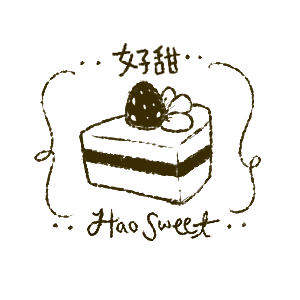 好甜
Hao Sweet